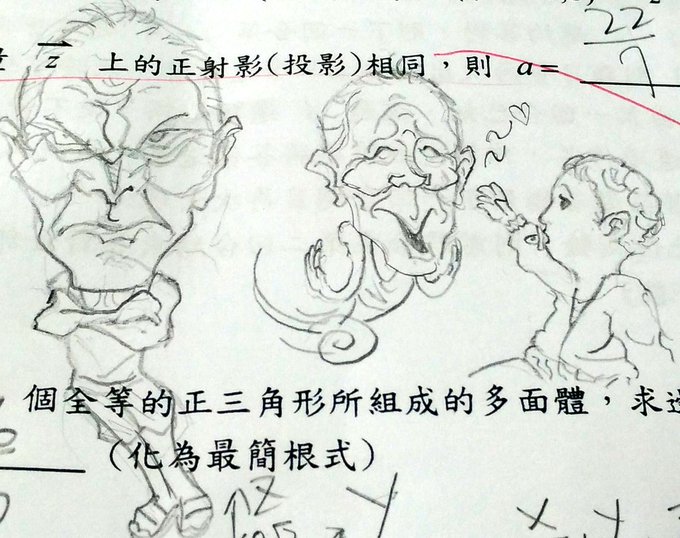 z 上的正射影(投影)相同，則 a= 22/7
個全等的正三角形所組成的多面體，求
(化為最簡根式)
Z Y X Y